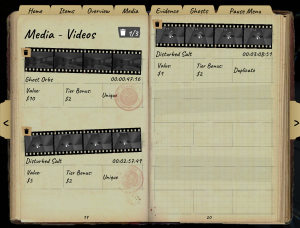 Home Items Overview Media Evidence Ghosts Pause Menu
Media - Videos
1/3
Ghost Orbs 00:00:47:16
Value: Tier Bonus: Unique
$10 $2
Disturbed Salt 00:02:57:49
Value: Tier Bonus: Unique
$3 $2
19
Disturbed Salt 00:03:08:51
Value: Tier Bonus: Duplicate
$1 $2
20